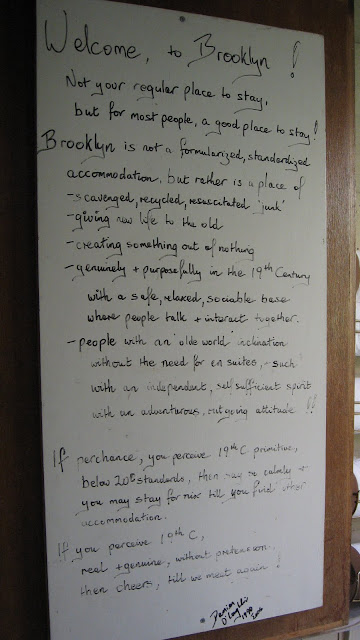 Welcome, to Brooklyn !
Not your regular place to stay,
but for most people, a good place to stay!
Brooklyn is not a formularized, standardized
accommodation, but rather is a place of
- scavenged, recycled, resuscitated 'junk'
- giving new life to the old
- creating something out of nothing
- genuinely + purposefully in the 19th Century
with a safe, relaxed, sociable base
where people talk + interact together.
- people with an 'olde world' inclination
without the need for en suites, - such
with an independent, self sufficient spirit
with an adventurous, outgoing attitude !!
If perchance, you perceive 19th C primitive,
below 20th standards, then say so calmly +
you may stay for nix till you find other
accommodation.
If you perceive 19th C,
real + genuine, without pretension
then cheers, till we meet again !
Damian
1990